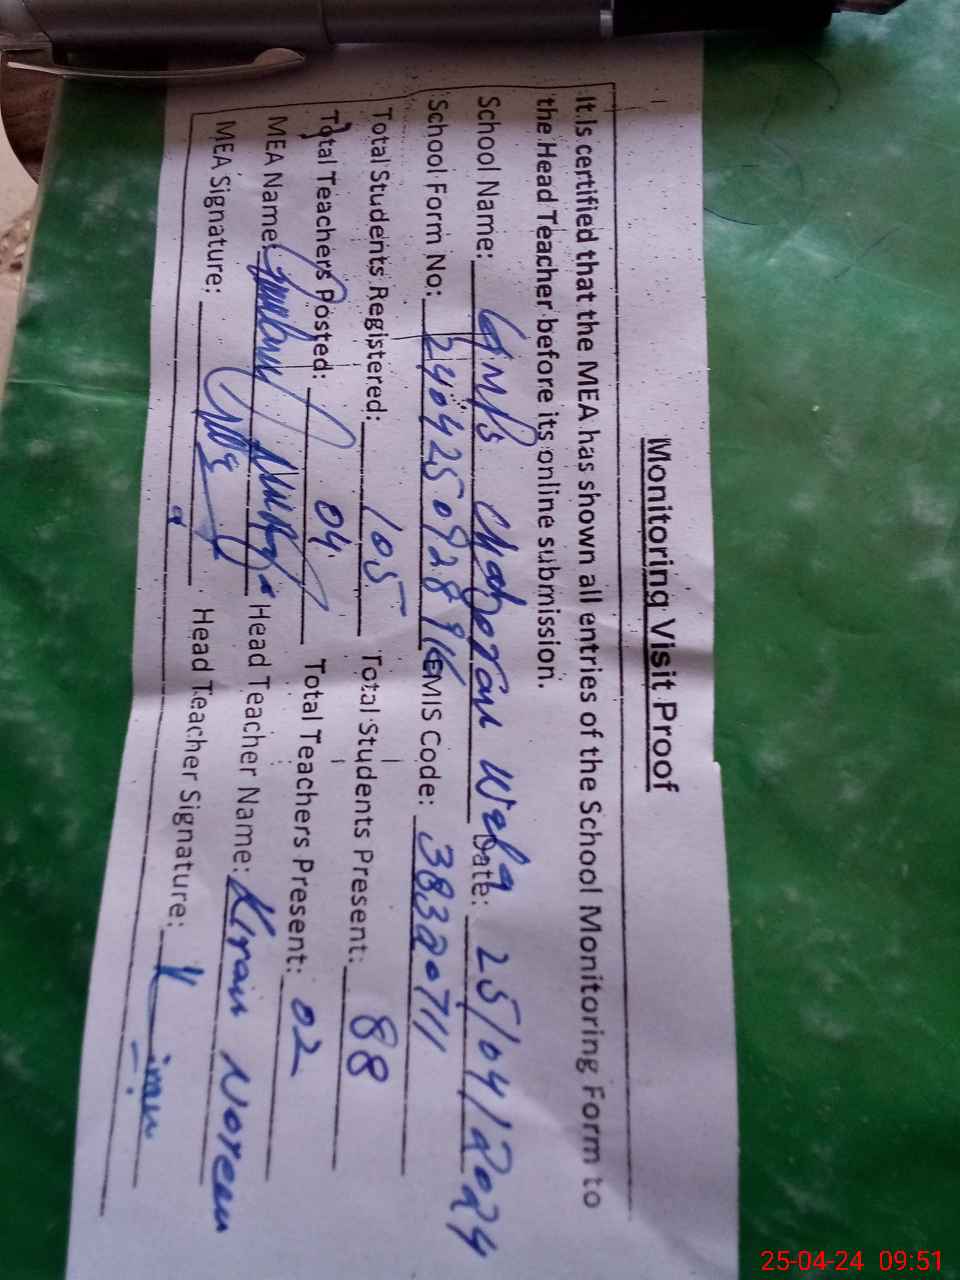 Monitoring Visit Proof
It Is certified that the MEA has shown all entries of the School Monitoring Form to
the Head Teacher before its online submission.
School Name: GMPS Date: 25/04/2024
School Form No: EMIS Code: 38320711
Total Students Registered: 105 Total Students Present: 88
Total Teachers Posted: 04 Total Teachers Present: 02
MEA Name: Head Teacher Name: Kiran Noreen
MEA Signature: Head Teacher Signature:
25-04-24 09:51